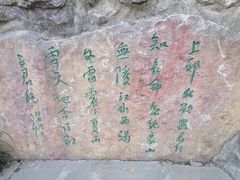 上邪我欲與君相
知長命無絕衰山
無陵江水為竭
冬雷震震夏雨
雪天地合乃敢
與君絕